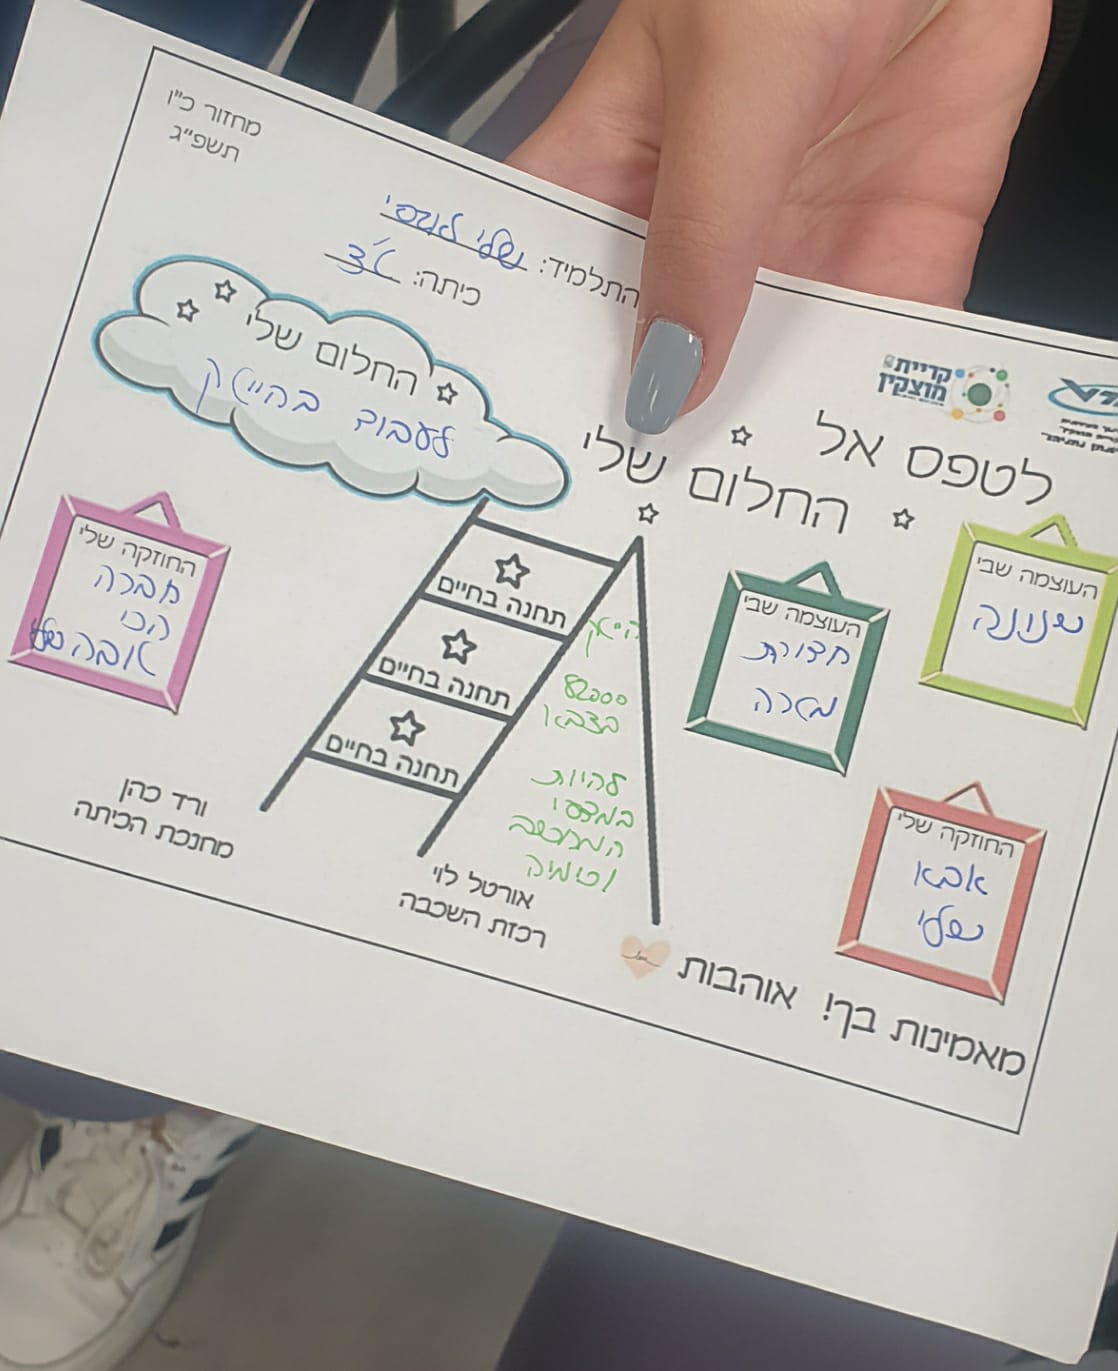 מחזור כ"ו
תשפ"ג
התלמיד: שלי
כיתה:
קריית
מוצקין
לטפס אל
החלום שלי
החלום שלי
לעבוד בהייטק
העוצמה שבי
שנונה
העוצמה שבי
חדורת
מטרה
החוזקה שלי
חברה
הכי
טובה שלי
החוזקה שלי
אבא
שלי
תחנה בחיים
תחנה בחיים
תחנה בחיים
הייטק
8200
בצבא
להיות
במדעי
המחשב
וכימיה
ורד כהן
מחנכת הכיתה
אורטל לוי
רכזת השכבה
מאמינות בך! אוהבות